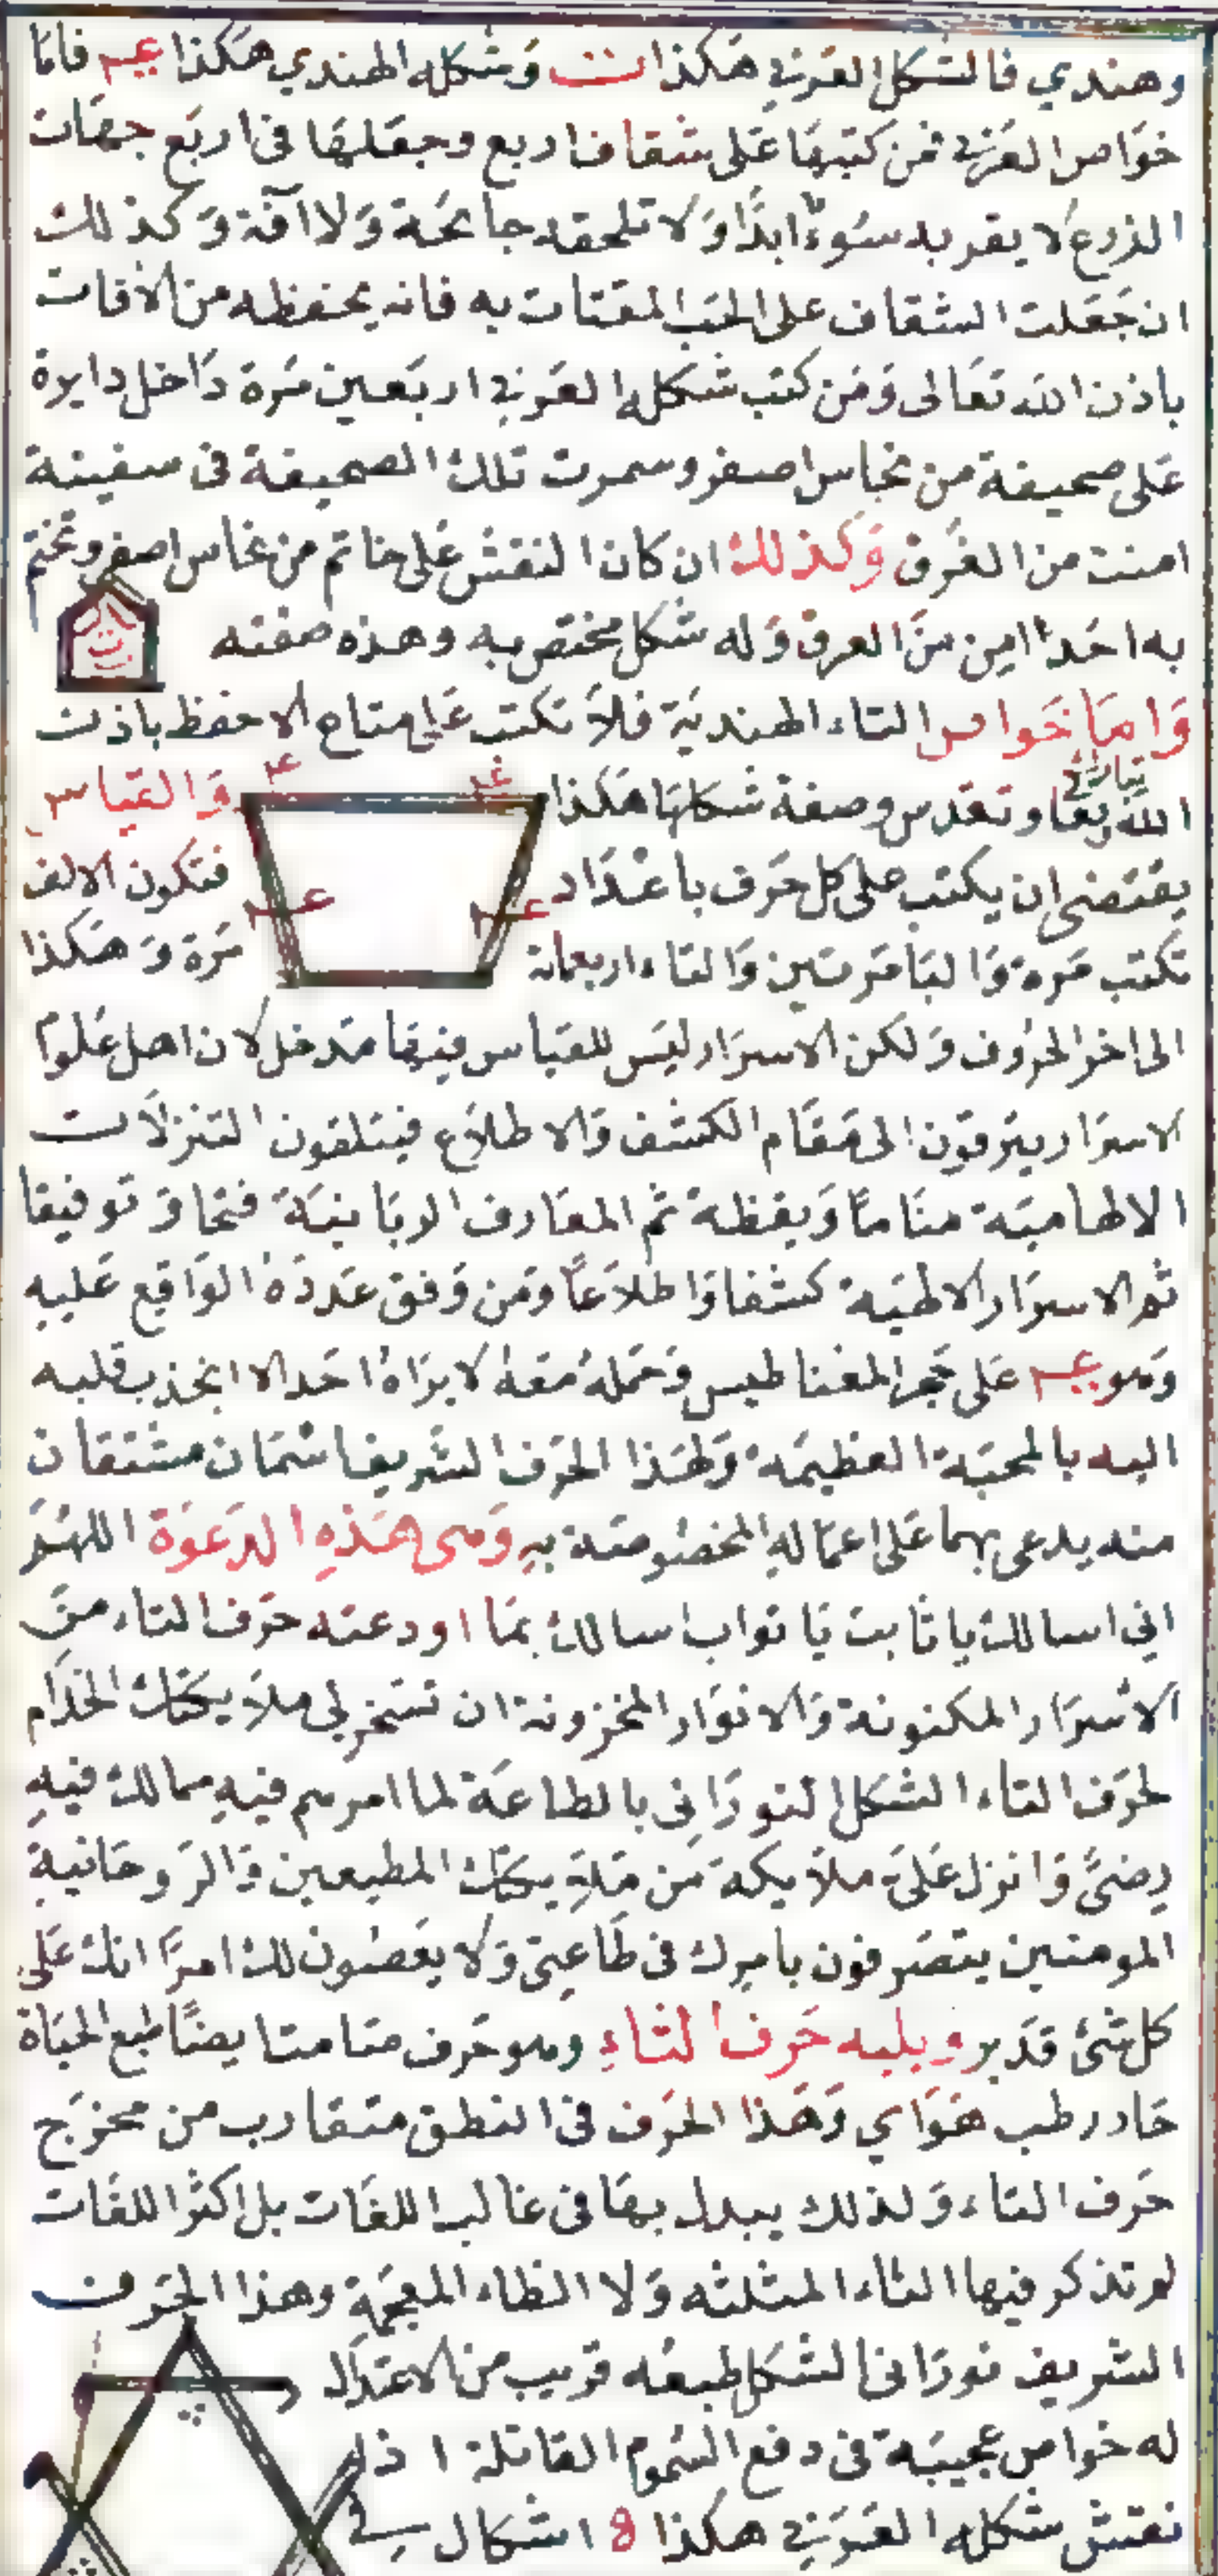 وهندي فالشكل العربي هكذا ت وشكله الهندي هكذا عـ فاما
خواص العربي فمن كتبها على شقاف اربع وجعلها فى اربع جهات
الزرع لا يقربه سوء ابدًا ولا تلحقه جايحة ولا آفة وكذلك
ان جعلت الشقاف على الحب المقتات به فانه يحفظه من الآفات
باذن الله تعالى ومن كتب شكله العربي اربعين مرة داخل دايرة
على صحيفة من نحاس اصفر وسمرت تلك الصحيفة فى سفينة
امنت من الغرق وكذلك ان كان النقش على خاتم من نحاس اصفر وتختم
به احدا امن من الغرق وله شكل مختص به وهذه صفته
واما خواص التاء الهندية فلا تكتب على متاع الا حفظ باذن
الله تعا وتقدس وصفة شكلها هكذا والقياس
يقتضى ان يكتب على كل حرف باعداد فتكون الالف
تكتب مرة والبا مرتين والتاء اربعماية مرة وهكذا
الى اخر الحروف ولكن الاسرار ليس للقياس فيها مدخل لان اهل علوم
الاسرار يترقون الى مقام الكشف والاطلاع فيتلقون التنزلات
الالهامية مناما ويقظة ثم المعارف الربانية فتحا وتوفيقا
ثم الاسرار الالهية كشفا واطلاعا ومن وفق عدده الواقع عليه
وهو عـ على حجر المغناطيس وحمله معه لا يراه احد الا انجذب قلبه
اليه بالمحبة العظيمة ولهذا الحرف الشريف اسمان مشتقان
منه يدعى بهما على اعماله المخصوصة به وهى هذه الدعوة اللهم
اني اسالك يا ثابت يا تواب اسالك بما اودعته حرف التاء من
الاسرار المكنونة والانوار المخزونة ان تسخر لي ملايكتك الخدام
لحرف التاء الشكل النوراني بالطاعة لما امرهم فيه مما لك فيه
رضىً وانزل علىّ ملايكة من ملايكتك المطيعين والروحانية
المومنين يتصرفون بامرك فى طاعتى ولا يعصون لك امرًا انك على
كل شئ قدير ويليه حرف الثاء وهو حرف صامت ايضًا طبع الحياة
حار رطب هوائي وهذا الحرف فى النطق متقارب من مخرج
حرف التاء ولذلك يبدل بها فى غالب اللغات بل اكثر اللغات
لم تذكر فيها الثاء المثلثه ولا الظاء المعجمة وهذا الحرف
الشريف نورانى الشكل طبعه قريب من الاعتدال
له خواص عجيبة فى دفع السموم القاتلة اذا
نقش شكله العربي هكذا 8 اشكال في